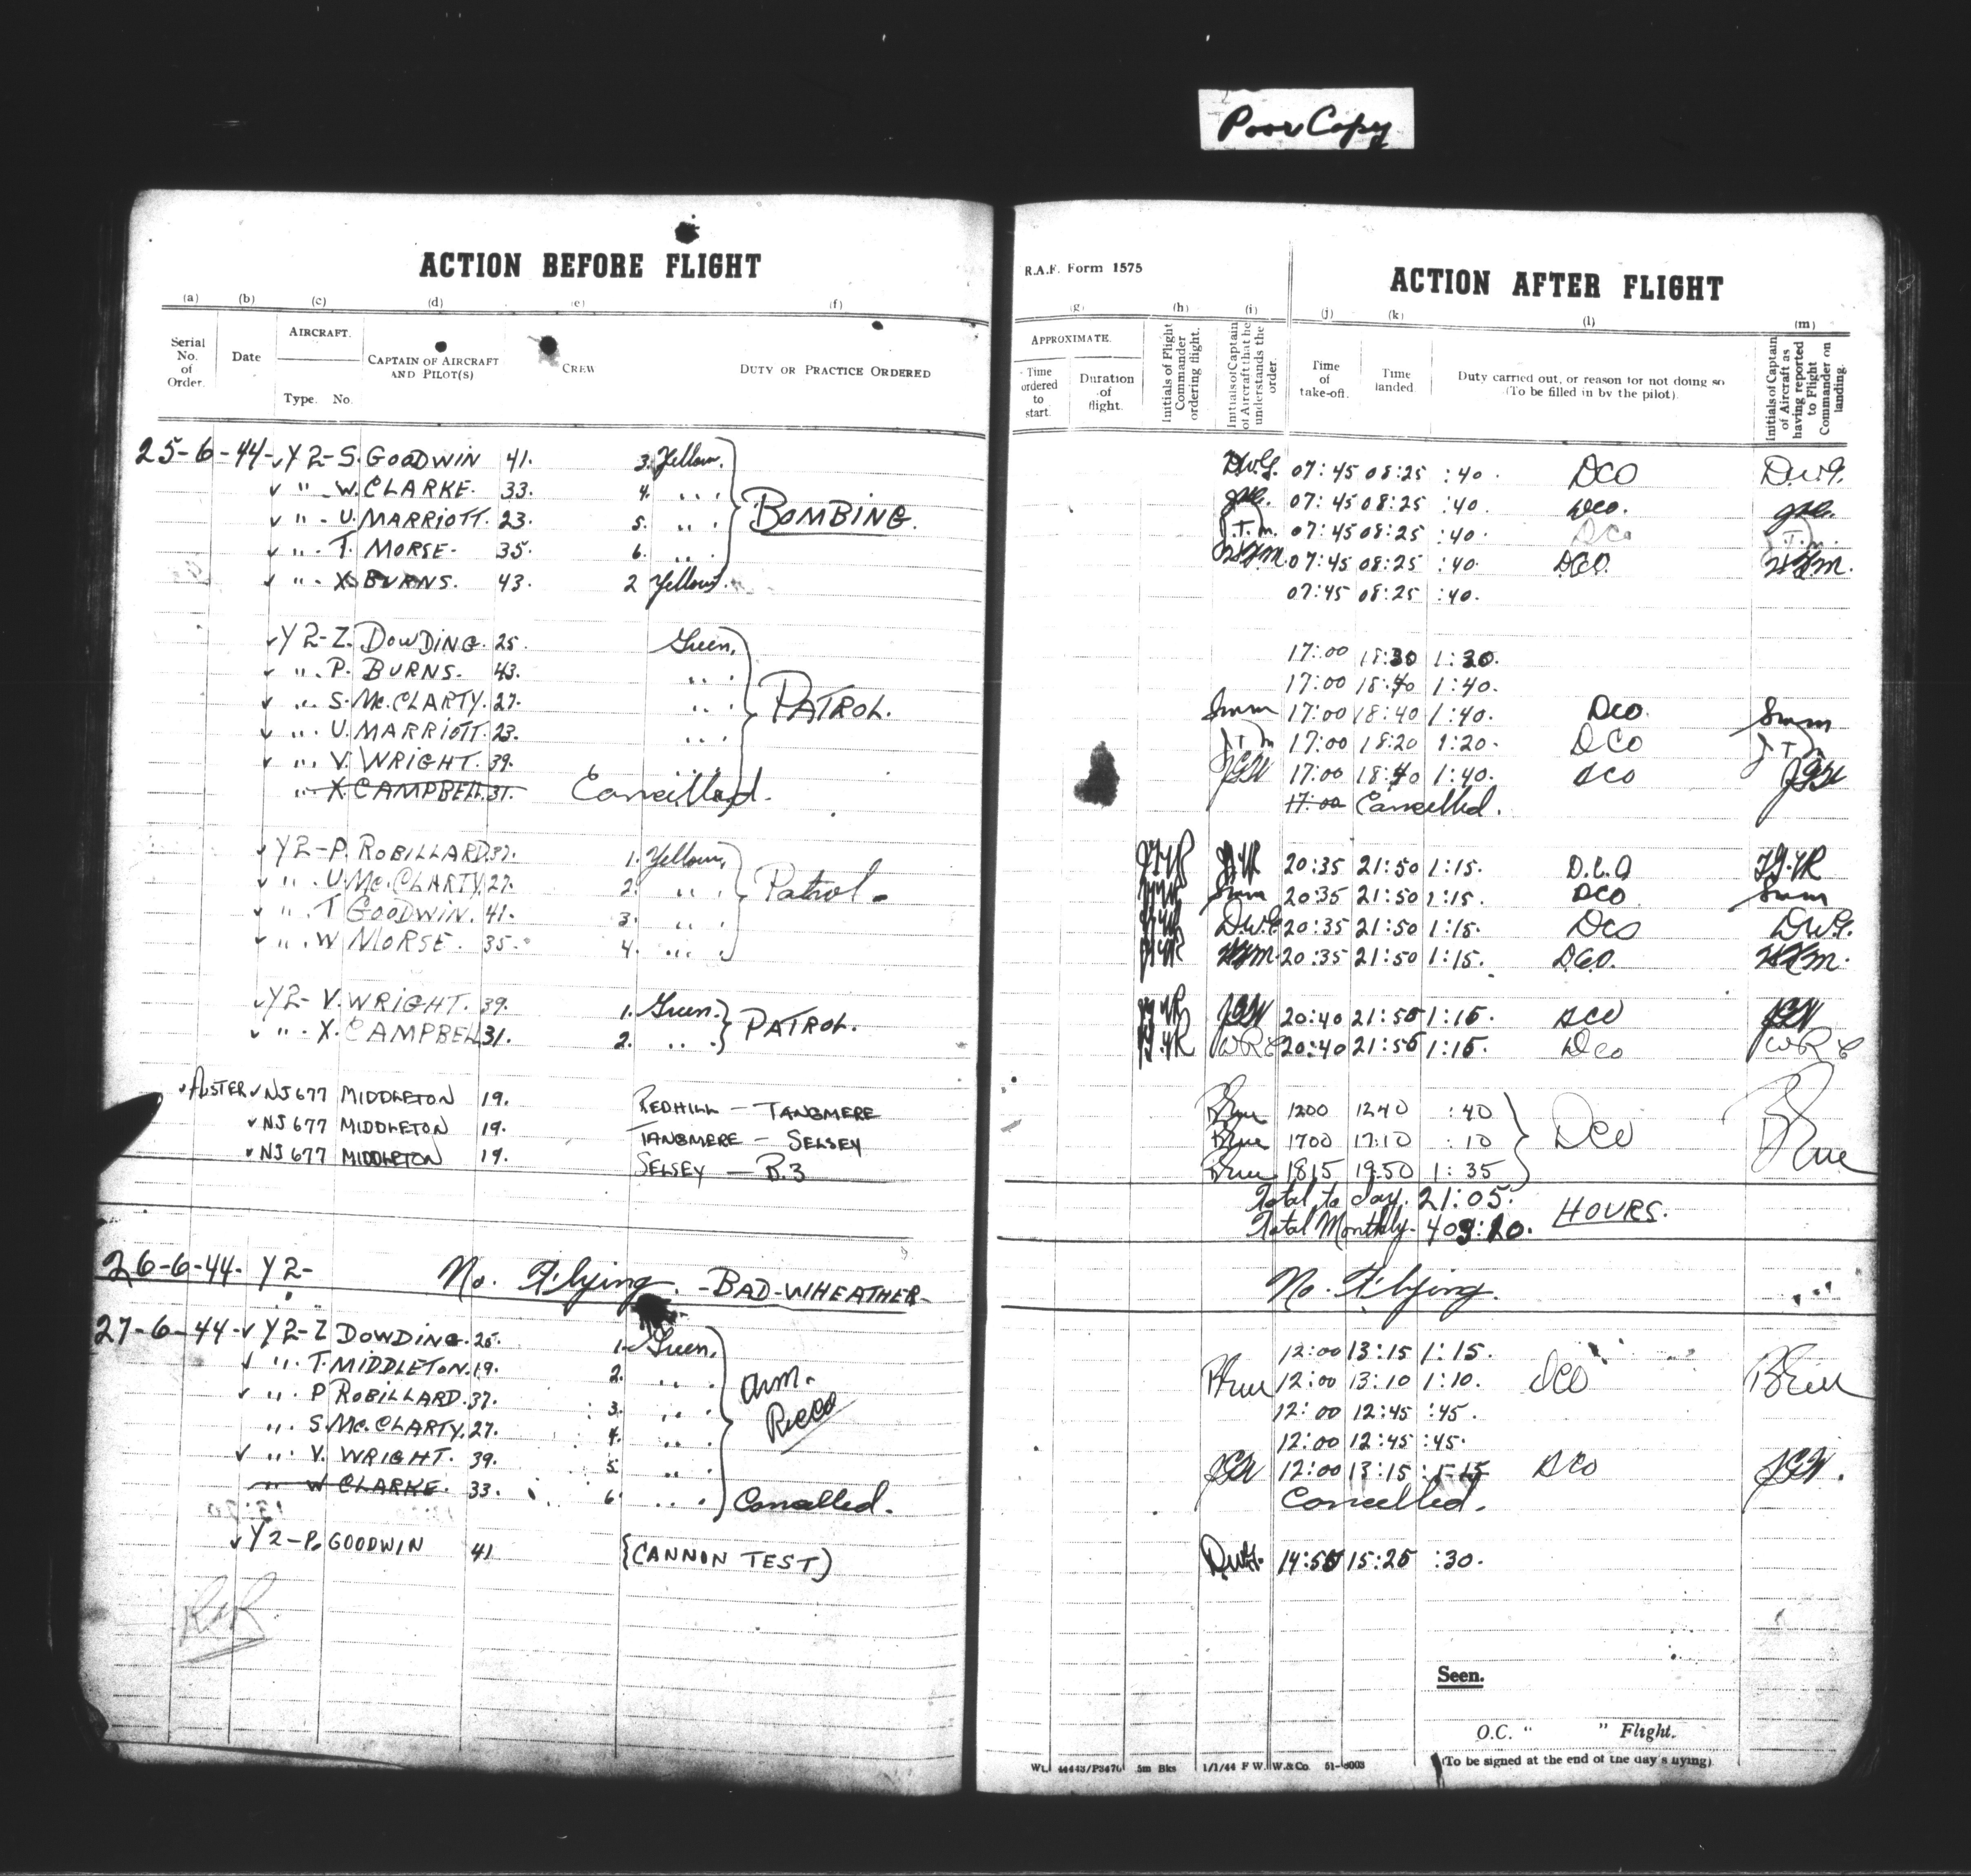 Poor Copy
ACTION BEFORE FLIGHT
(a) (b) (c) (d) (e) (f)
Serial No. of Order. Date AIRCRAFT. Type. No. CAPTAIN OF AIRCRAFT AND PILOT(S) CREW DUTY OR PRACTICE ORDERED
25-6-44- Y2-S. GOODWIN 41. 3. Yellow. BOMBING.
" - W. CLARKE. 33. 4. " .
" - U. MARRIOTT. 23. 5. " .
" - T. MORSE- 35. 6. " .
" - X. BURNS. 43. 2 Yellow.
Y2-Z. DOWDING. 25. Green. PATROL.
" . P. BURNS. 43. " .
" . S. McCLARTY. 27. " .
" . U. MARRIOTT. 23. " .
" . V. WRIGHT. 39. " .
" - X. CAMPBELL. 31. Cancelled.
Y2-P. ROBILLARD. 37. 1. Yellow. Patrol.
" . U. McCLARTY. 27. 2. " .
" . T GOODWIN. 41. 3. " .
" . W MORSE. 35. 4. " .
Y2- V. WRIGHT. 39. 1. Green. PATROL.
" - X. CAMPBELL 31. 2. " .
AUSTER NJ677 MIDDLETON 19. REDHILL - TANGMERE
NJ677 MIDDLETON 19. TANGMERE - SELSEY
NJ677 MIDDLETON 19. SELSEY - B.3
26-6-44- Y2- No. Flying. -BAD-WHEATHER-
27-6-44- Y2-Z DOWDING. 25. 1. Green. Arm. Recco
" . T. MIDDLETON. 19. 2. " .
" . P ROBILLARD. 37. 3. " .
" . S. McCLARTY. 27. 4. " .
" . V. WRIGHT. 39. 5. " .
" W CLARKE. 33. 6. " . Cancelled.
Y2-P. GOODWIN 41 (CANNON TEST)
R.A.F. Form 1575
ACTION AFTER FLIGHT
(g) (h) (i) (j) (k) (l) (m)
APPROXIMATE. Time ordered to start. Duration of flight. Initials of Flight Commander ordering flight. Initials of Captain of Aircraft that he understands the order. Time of take-off. Time landed. Duty carried out, or reason for not doing so (To be filled in by the pilot). Initials of Captain of Aircraft as having reported to Flight Commander on landing.
D.W.G. 07:45 08:25 :40. DCO D.W.G.
07:45 08:25 :40 DCO.
J.T.M. 07:45 08:25 :40. DCO J.T.M.
07:45 08:25 :40. DCO.
07:45 08:25 :40.
17:00 18:30 1:30.
17:00 18:40 1:40.
Smm 17:00 18:40 1:40. DCO Smm
J T M 17:00 18:20 1:20. DCO J T
JGW 17:00 18:40 1:40. DCO JGW
17:00 Cancelled.
20:35 21:50 1:15. D.C.O
Smm 20:35 21:50 1:15. DCO Smm
D.W.G 20:35 21:50 1:15. DCO D.W.G.
20:35 21:50 1:15. DCO.
JGW 20:40 21:55 1:15. DCO JGW
WRC 20:40 21:55 1:15. DCO WRC
1200 1240 :40 DCO
1700 17:10 :10
1815 19:50 1:35
Total to day. 21:05. HOURS.
Total Monthly. 409:20.
No. Flying.
12:00 13:15 1:15.
12:00 13:10 1:10. DCO
12:00 12:45 :45.
12:00 12:45 :45.
JGW 12:00 13:15 1:15 DCO JGW.
Cancelled.
DWG. 14:55 15:25 :30.
Seen.
O.C. " " Flight.
(To be signed at the end of the day's flying)
Wt. 44443/P3470 5m Bks 1/1/44 F W. W. & Co. 51-8003